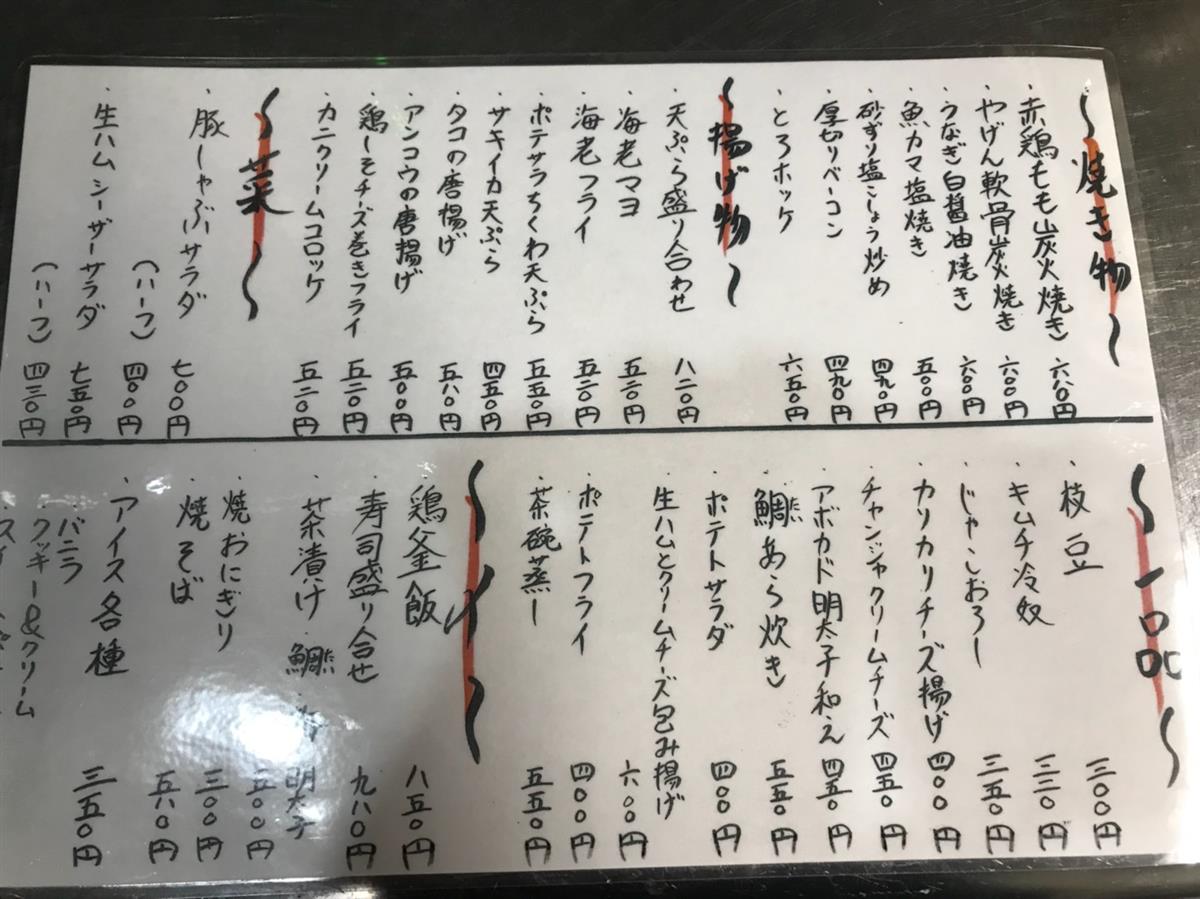 〜焼き物〜
・赤鶏もも炭火焼き 六八〇円
・やげん軟骨炭火焼き 六〇〇円
・うなぎ白醤油焼き 六〇〇円
・魚カマ塩焼き 五〇〇円
・砂ずり塩こしょう炒め 四九〇円
・厚切りベーコン 四九〇円
・とろホッケ 六五〇円
〜揚げ物〜
・天ぷら盛り合わせ 八二〇円
・海老マヨ 五二〇円
・海老フライ 五二〇円
・ポテサラちくわ天ぷら 五五〇円
・サキイカ天ぷら 四五〇円
・タコの唐揚げ 五八〇円
・アンコウの唐揚げ 五〇〇円
・鶏しそチーズ巻きフライ 五二〇円
・カニクリームコロッケ 五二〇円
〜菜〜
・豚しゃぶサラダ 七〇〇円
(ハーフ) 四〇〇円
・生ハムシーザーサラダ 七五〇円
(ハーフ) 四三〇円
〜一品〜
・枝豆 三〇〇円
・キムチ冷奴 三三〇円
・じゃこおろし 三五〇円
・カリカリチーズ揚げ 四〇〇円
・チャンジャクリームチーズ 四五〇円
・アボカド明太子和え 四五〇円
・鯛あら炊き 五五〇円
たい
・ポテトサラダ 四〇〇円
・生ハムとクリームチーズ包み揚げ 六〇〇円
・ポテトフライ 四〇〇円
・茶碗蒸し 五五〇円
〜〆〜
・鶏釜飯 八五〇円
・寿司盛り合せ 九八〇円
・茶漬け 鯛・梅・明太子 五〇〇円
たい
・焼おにぎり 三〇〇円
・焼そば 五八〇円
・アイス各種 三五〇円
バニラ
クッキー&クリーム